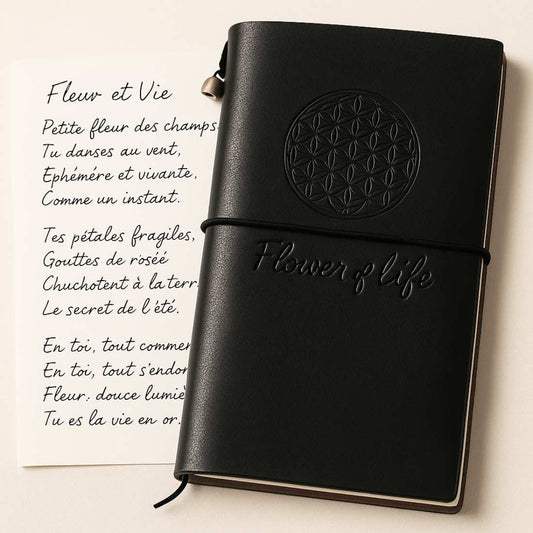 Fleur et Vie
Petite fleur des champs
Tu danses au vent,
Ephémére et vivante,
Comme un instant.
Tes pétales fragiles,
Gouttes de roséé
Chuchotent à la terr
Le secret de l'été.
En toi, tout commen
En toi, tout s'endor
Fleur: douce lumiè
Tu es la vie en or.
Flower of life